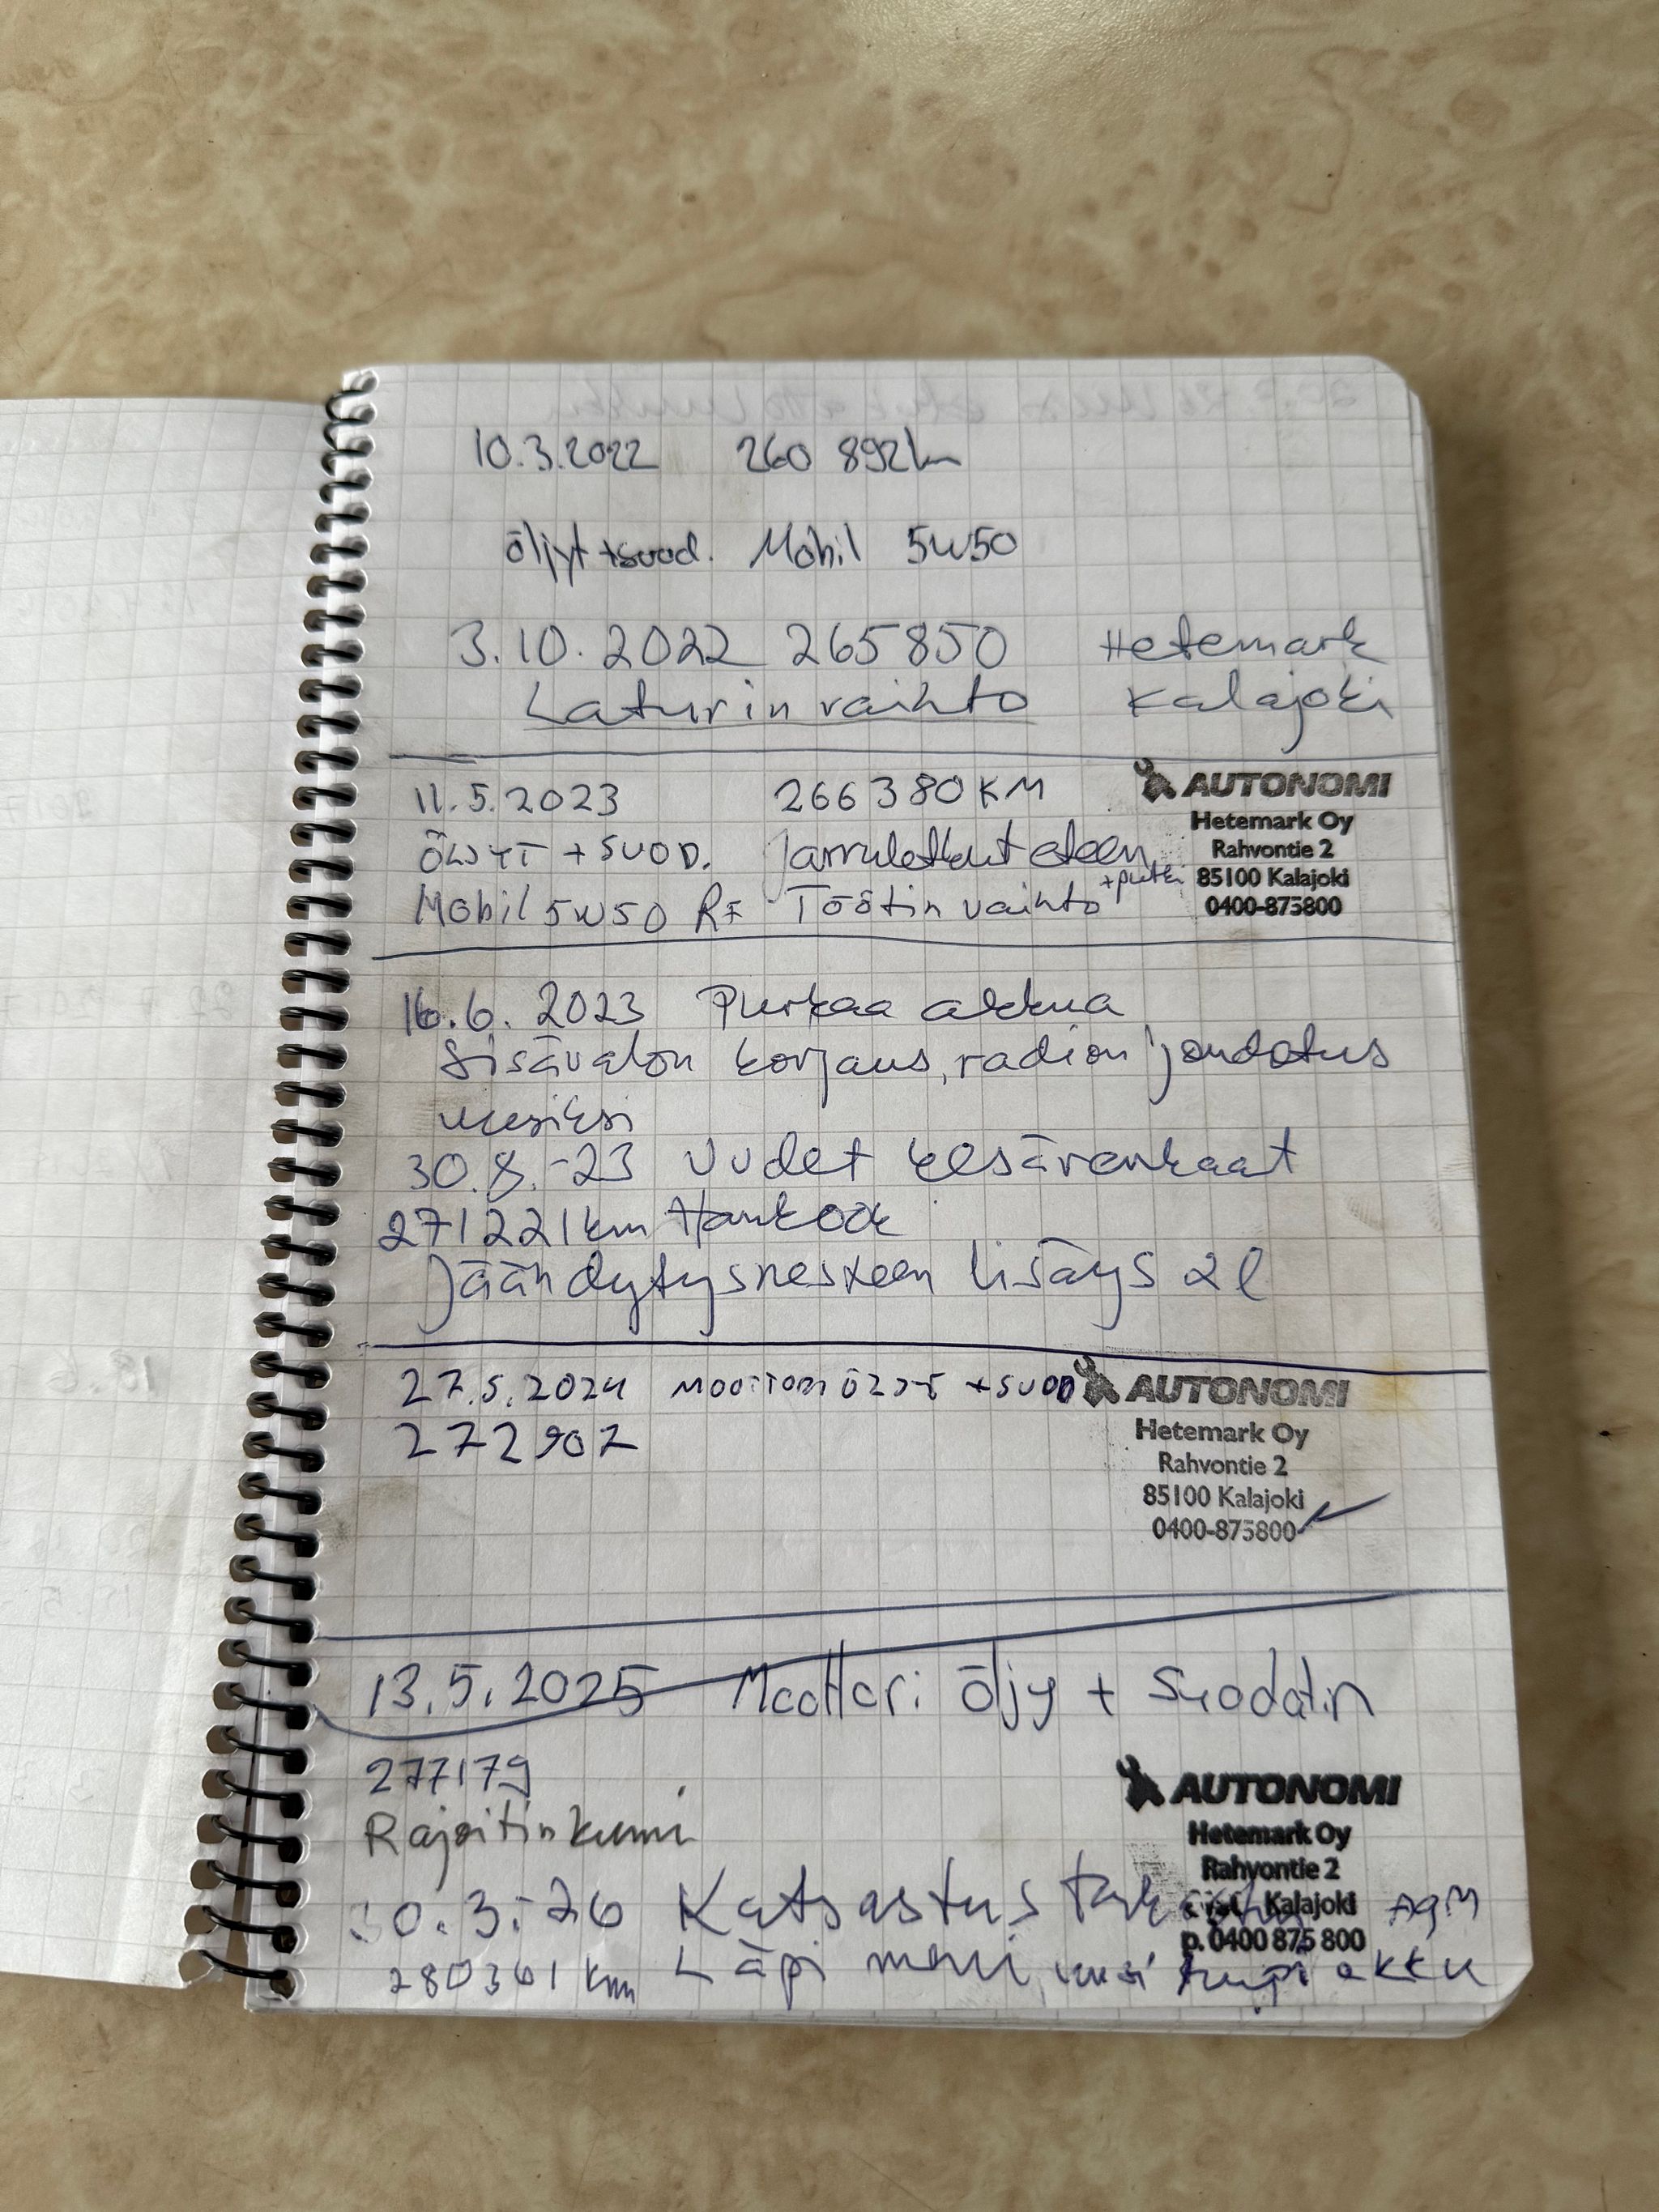 10.3.2022 260 892km
öljyt +suod. Mobil 5W50
3.10.2022 265850 Hetemark
Laturin vaihto Kalajoki
11.5.2023 266380 KM
ÖLJYT + SUOD. Jarruletkut eteen
+putki
Mobil 5W50 Töötin vaihto
AUTONOMI
Hetemark Oy
Rahvontie 2
85100 Kalajoki
0400-875800
16.6. 2023 Purkaa akkua
Sisävalon korjaus, radion johdotus
uusiksi
30.8.-23 Uudet kesärenkaat
271221km Hankook
Jäähdytysnesteen lisäys 2l
27.5.2024 MOOTTORI ÖLJYT + SUOD
272907
AUTONOMI
Hetemark Oy
Rahvontie 2
85100 Kalajoki
0400-875800
13.5.2025 Moottori öljy + Suodatin
277179
Rajoitinkumi
AUTONOMI
Hetemark Oy
Rahvontie 2
Kalajoki
p. 0400 875 800
30.3.-26 Katsastus AGM
280361 km Läpi meni, uusi akku